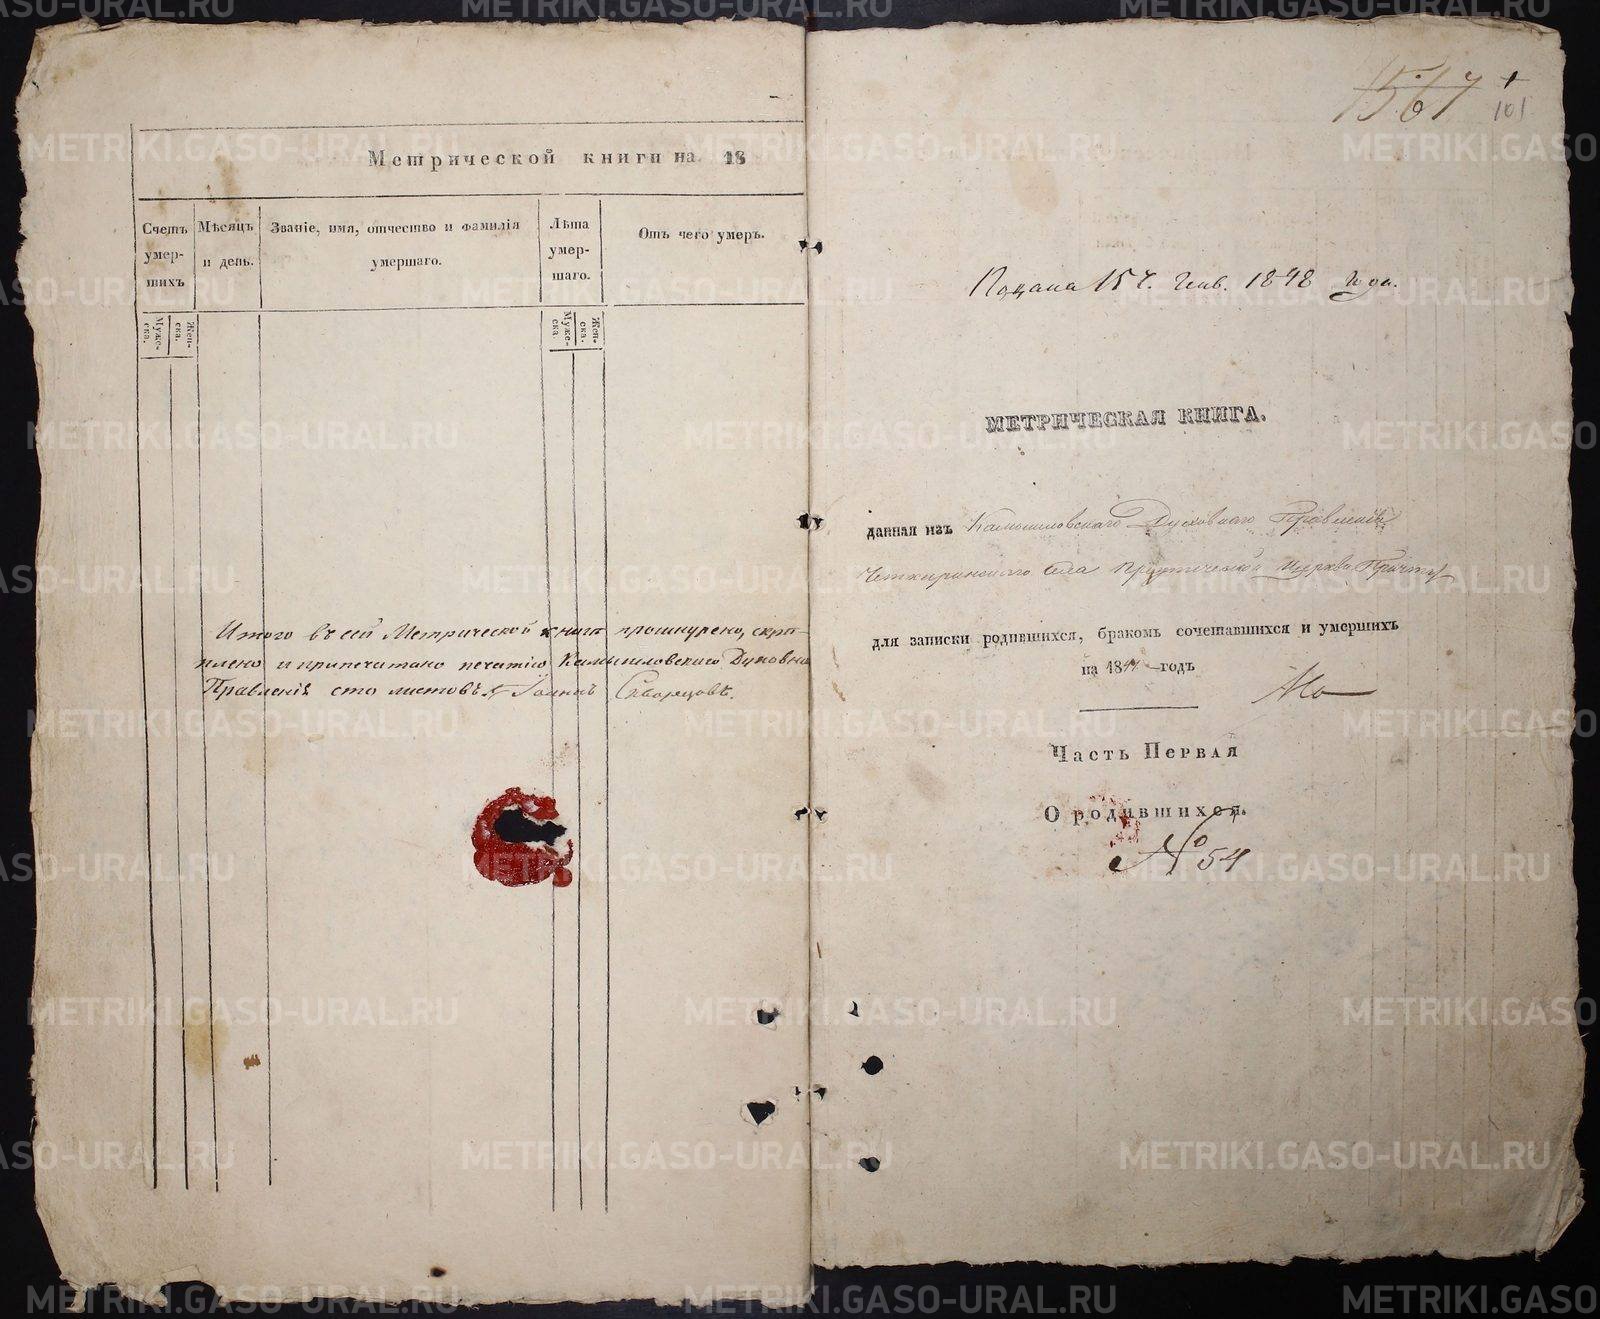 Метрической книги на 18
Счетъ умершихъ
Мѣсяцъ и день.
Званіе, имя, отчество и фамилія умершаго.
Лѣта умершаго.
Отъ чего умеръ.
Мужеска.
Женска.
Мужеска.
Женска.
Итого въ сей Метрической книгѣ прошнурено, скрѣ-
плено и припечатано печатью Камышловскаго Духовна
Правленія сто листовъ. Іоаннъ Скворцовъ.
1567
101
Подана 15 ч. Генв. 1848 года.
МЕТРИЧЕСКАЯ КНИГА.
данная изъ Камышловскаго Духовнаго Правленія
Четкаринскаго села Церкви Причту
для записки родившихся, бракомъ сочетавшихся и умершихъ
на 1847 годъ
Часть Первая
О родившихся.
№ 54
METRIKI.GASO-URAL.RU